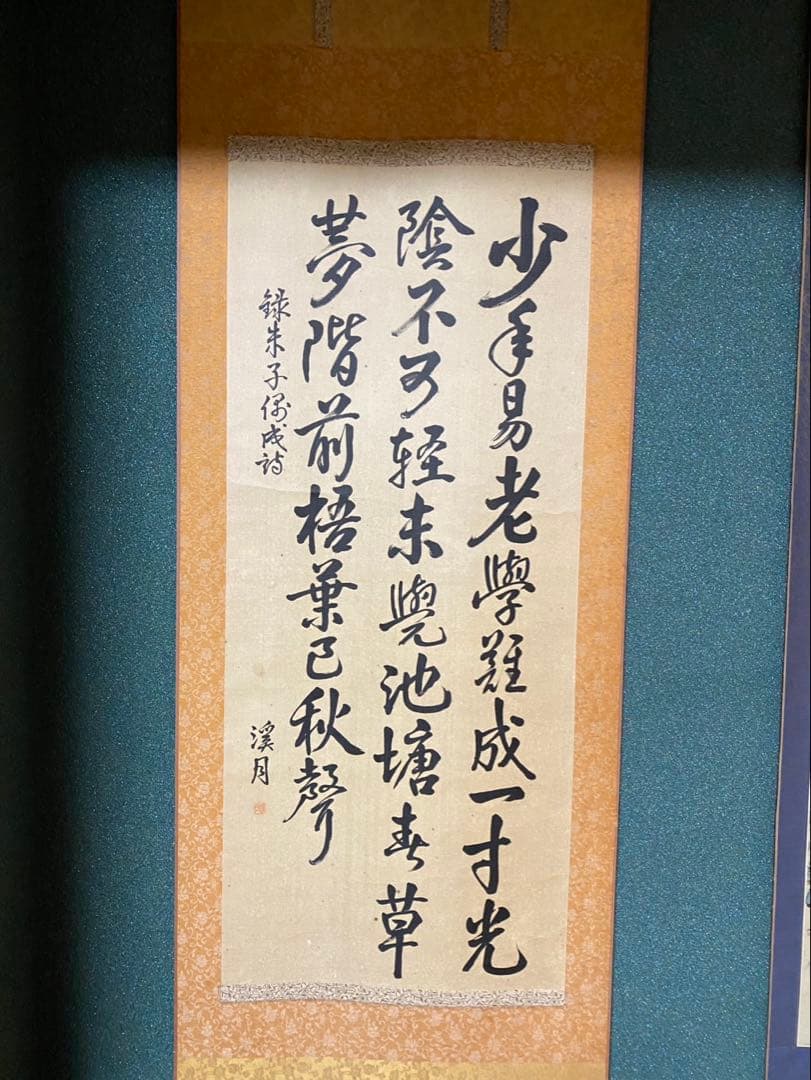 少年易老學難成一寸光
陰不可輕未覺池塘春草
夢階前梧葉已秋聲
録朱子偶成詩
溪月